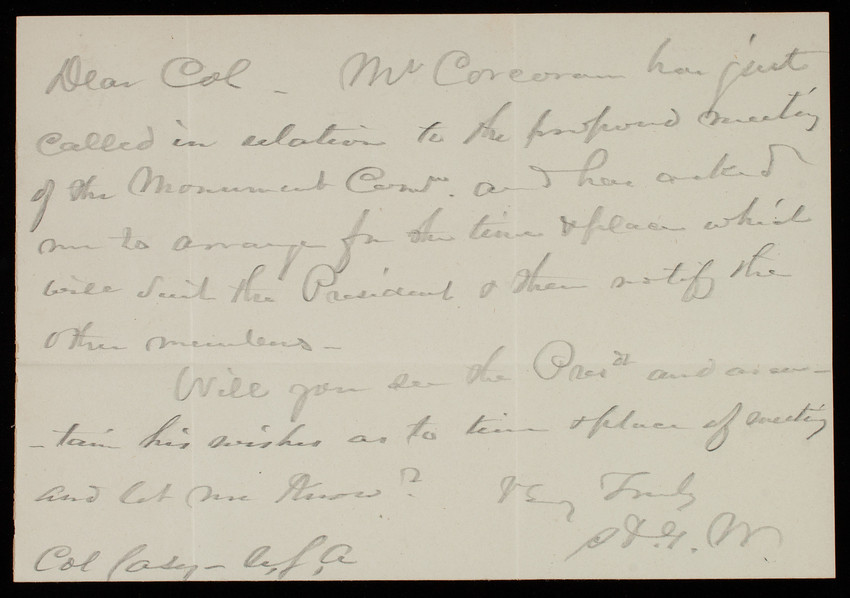 Dear Col - Mr Corcoran has just
called in relation to the proposed meeting
of the Monument Comn. and has asked
me to arrange for the time & place which
will suit the President & then notify the
other members -
Will you see the Presdt and ascer-
-tain his wishes as to time & place of meeting
and let me know? Very Truly
Col Casey - U.S.A